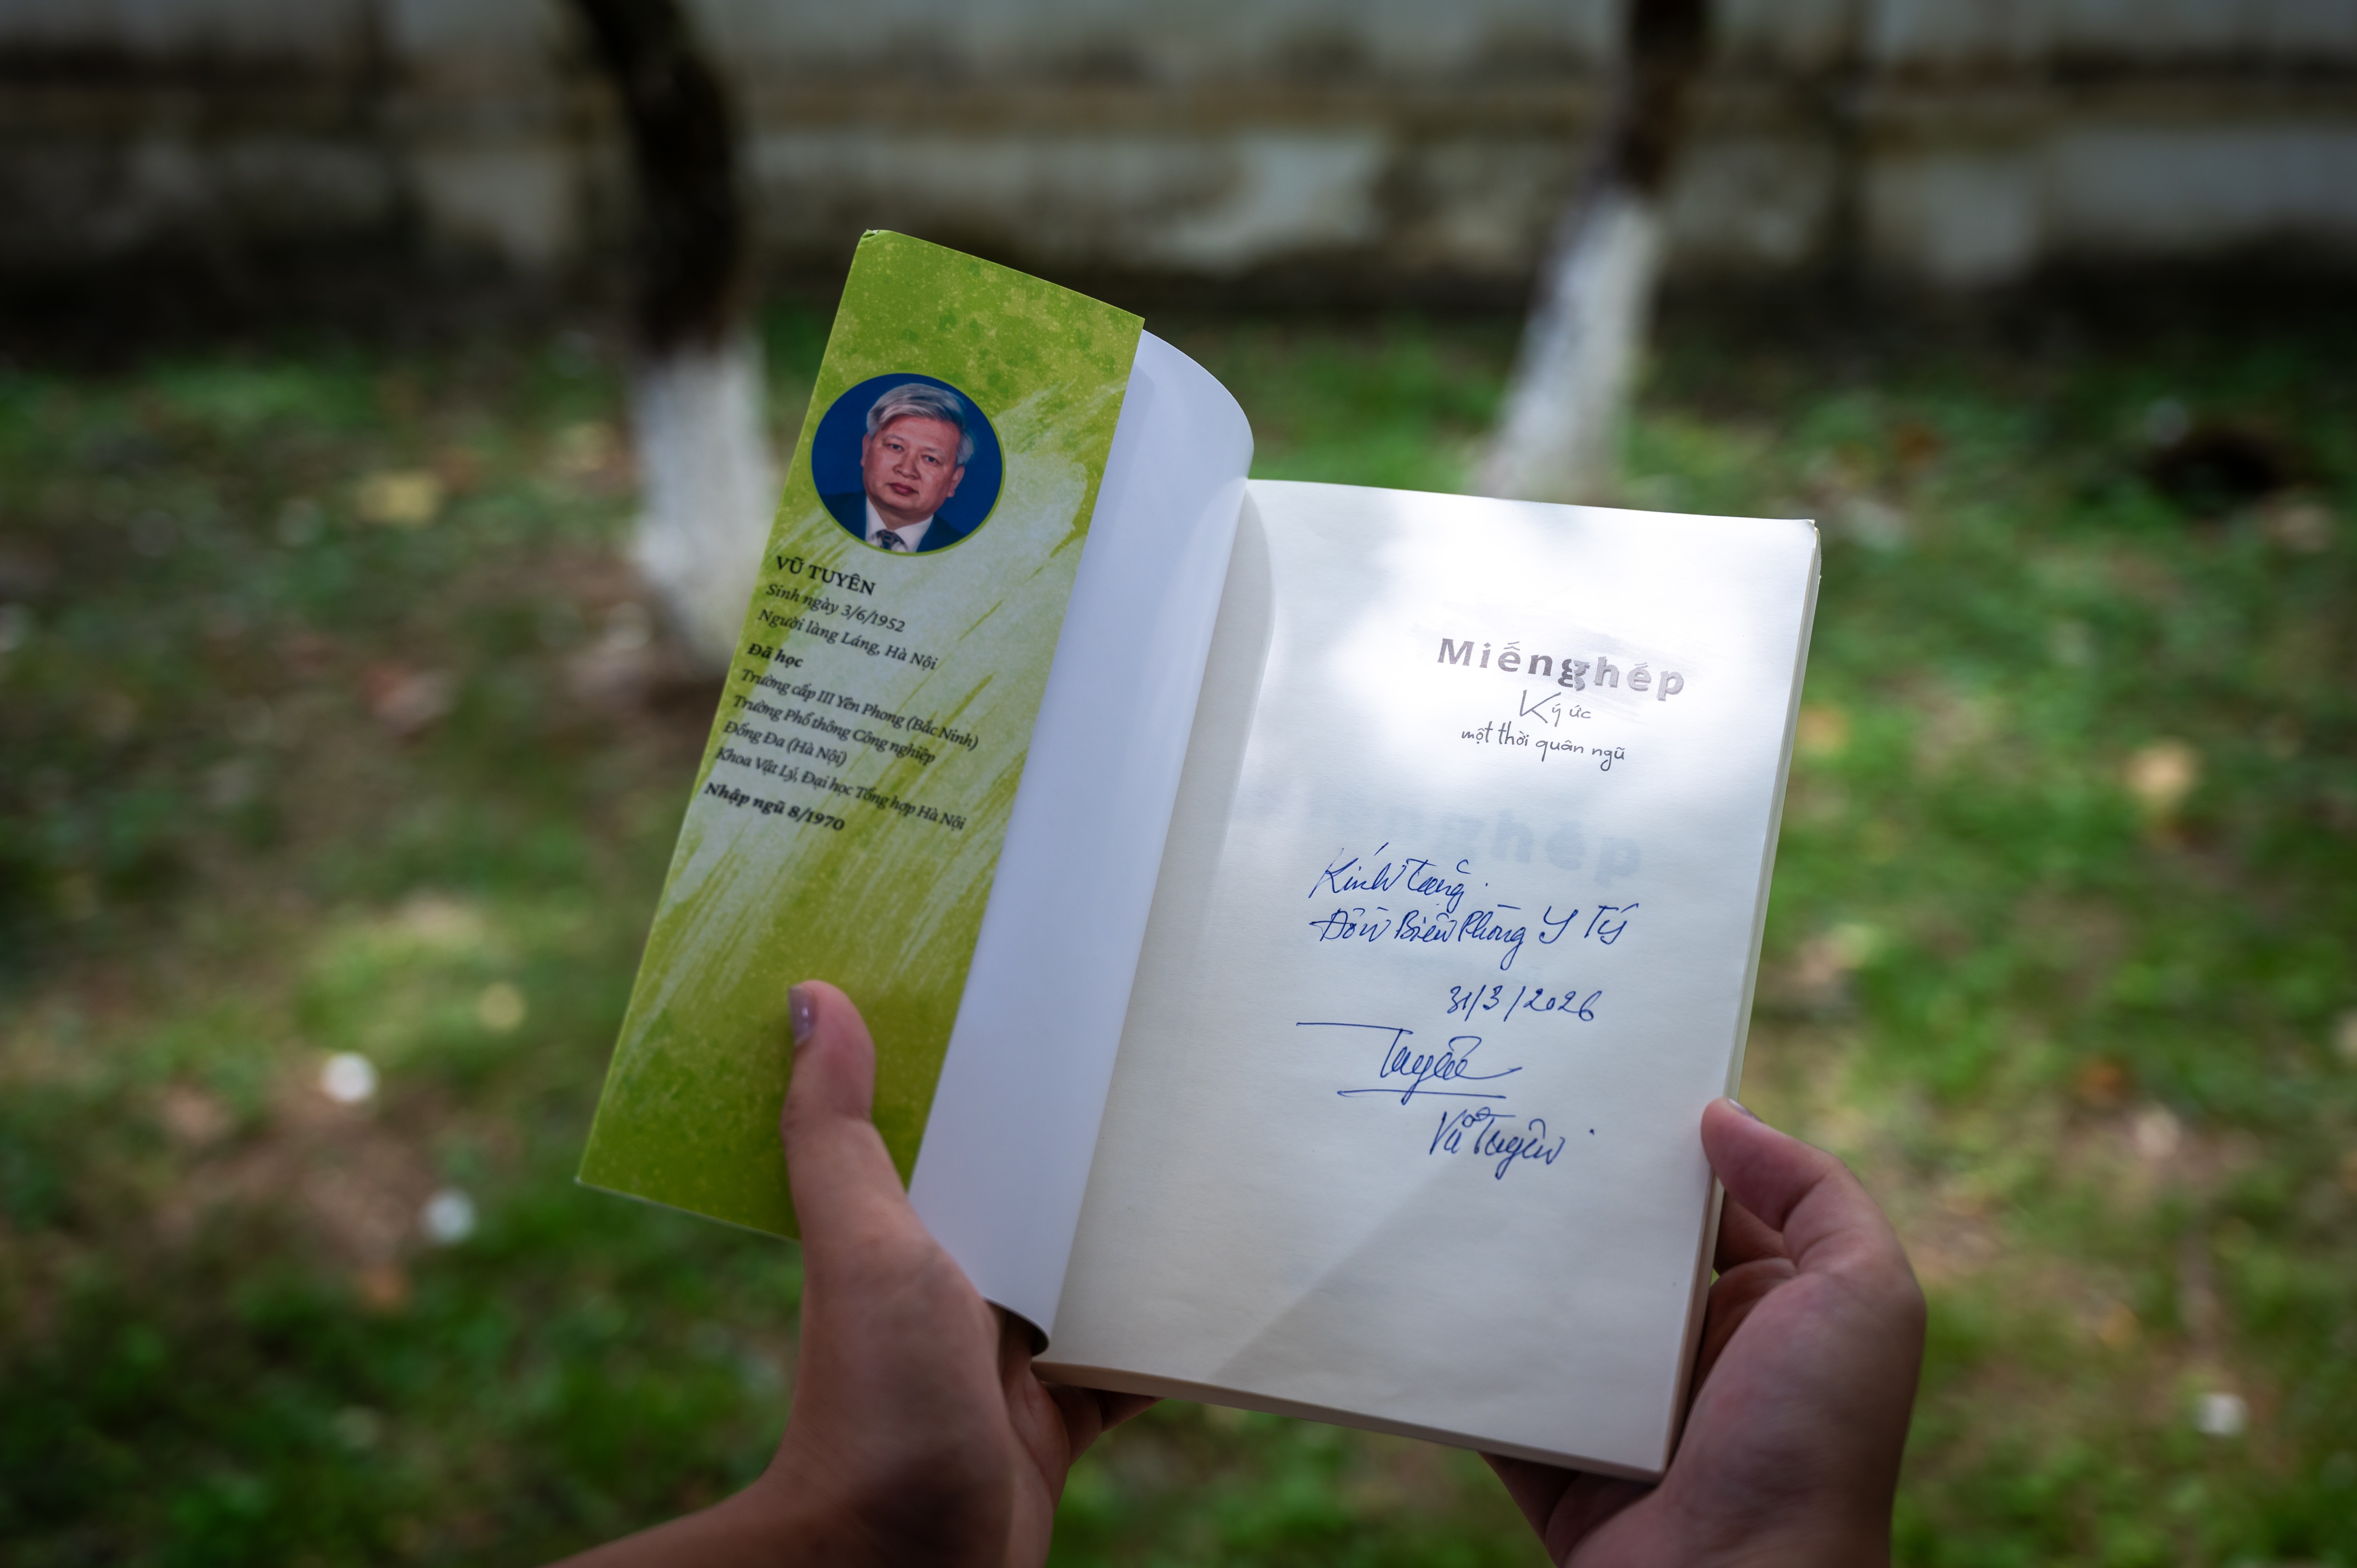 VŨ TUYÊN
Sinh ngày 3/6/1952
Người làng Láng, Hà Nội
Đã học
Trường cấp III Yên Phong (Bắc Ninh)
Trường Phổ thông Công nghiệp
Đống Đa (Hà Nội)
Khoa Vật Lý, Đại học Tổng hợp Hà Nội
Nhập ngũ 8/1970
Miếng ghép
Ký ức
một thời quân ngũ
Kính tặng
Đồn Biên Phòng Y Tý
31/3/2026
Tuyên
Vũ Tuyên